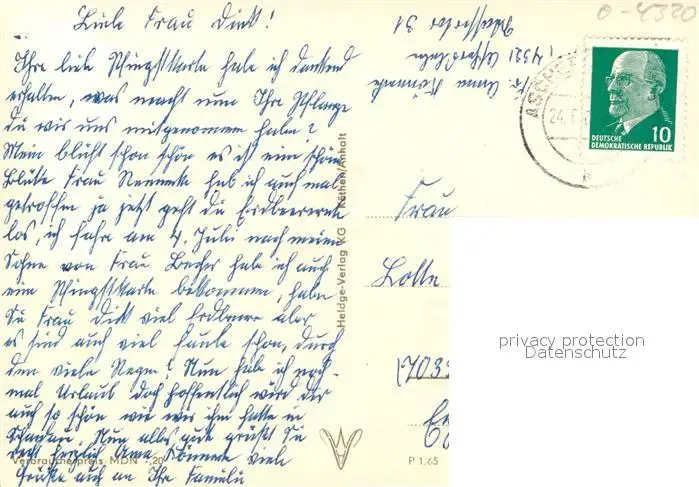 Liebe Frau Dirk!
Ihre liebe Pfingstkarte hab ich dankend
erhalten, was macht nun Ihre Pflanze
du wir uns mitgenommen haben?
Mein blüht schon schön es ist ein schön
Blüte Frau hab ich auch mal
getroffen ja jetzt geht die Erdbeerernte
los, ich fahre am 4. Juli nach meinen
Sohne von Frau Becher hab ich auch
ein Pfingstkarte bekommen, haben
Sie Frau Dirk viel Erdbeere aber
es sind auch viel faule schon, durch
den viele Regen? Nun hab ich noch-
mal Urlaub doch hoffentlich wird der
auch so schön wie wir ihn hatte in
Schandau. Nun alles gute grüßt Sie
recht herzlich Anna Könnecke viele
Grüße auch an Ihre Familie
Verbraucherpreis MDN -,20
Heldge-Verlag KG Köthen/Anhalt
P 1/65
Fr. Anna Könnecke
4321
31
0-4320
ASCHE
24.6.
DEUTSCHE
DEMOKRATISCHE REPUBLIK
10
Frau
Lotte
(7033
privacy protection
Datenschutz